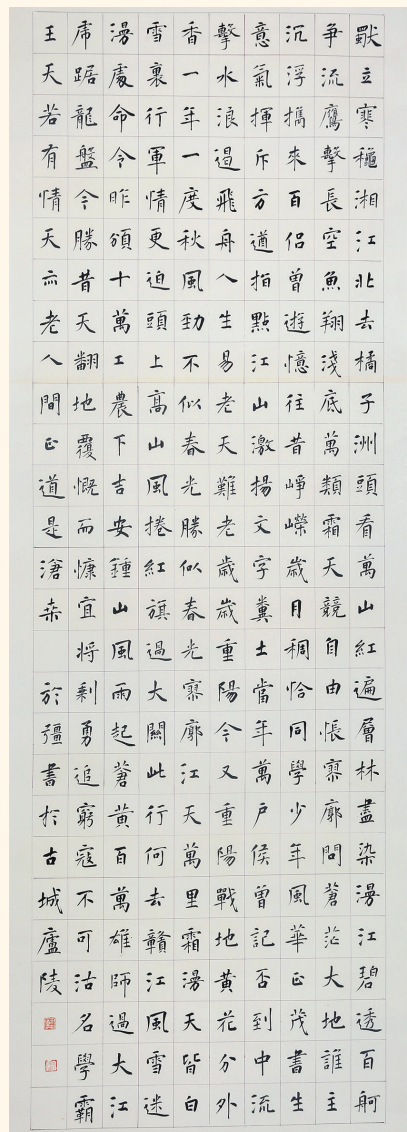 獨立寒龝湘江北去橘子洲頭看萬山紅遍層林盡染漫江碧透百舸
争流鷹擊長空魚翔淺底萬類霜天競自由悵寥廓問蒼茫大地誰主
沉浮攜來百侶曾遊憶往昔崢嶸歲月稠恰同學少年風華正茂書生
意氣揮斥方遒指點江山激揚文字糞土當年萬戶侯曾記否到中流
擊水浪遏飛舟人生易老天難老歲歲重陽今又重陽戰地黃花分外
香一年一度秋風勁不似春光勝似春光寥廓江天萬里霜漫天皆白
雪裏行軍情更迫頭上高山風捲紅旗過大關此行何去贛江風雪迷
漫處命令昨頒十萬工農下吉安鍾山風雨起蒼黃百萬雄師過大江
虎踞龍盤今勝昔天翻地覆慨而慷宜將剩勇追窮寇不可沽名學霸
王天若有情天亦老人間正道是滄桑 於彊書於古城廬陵